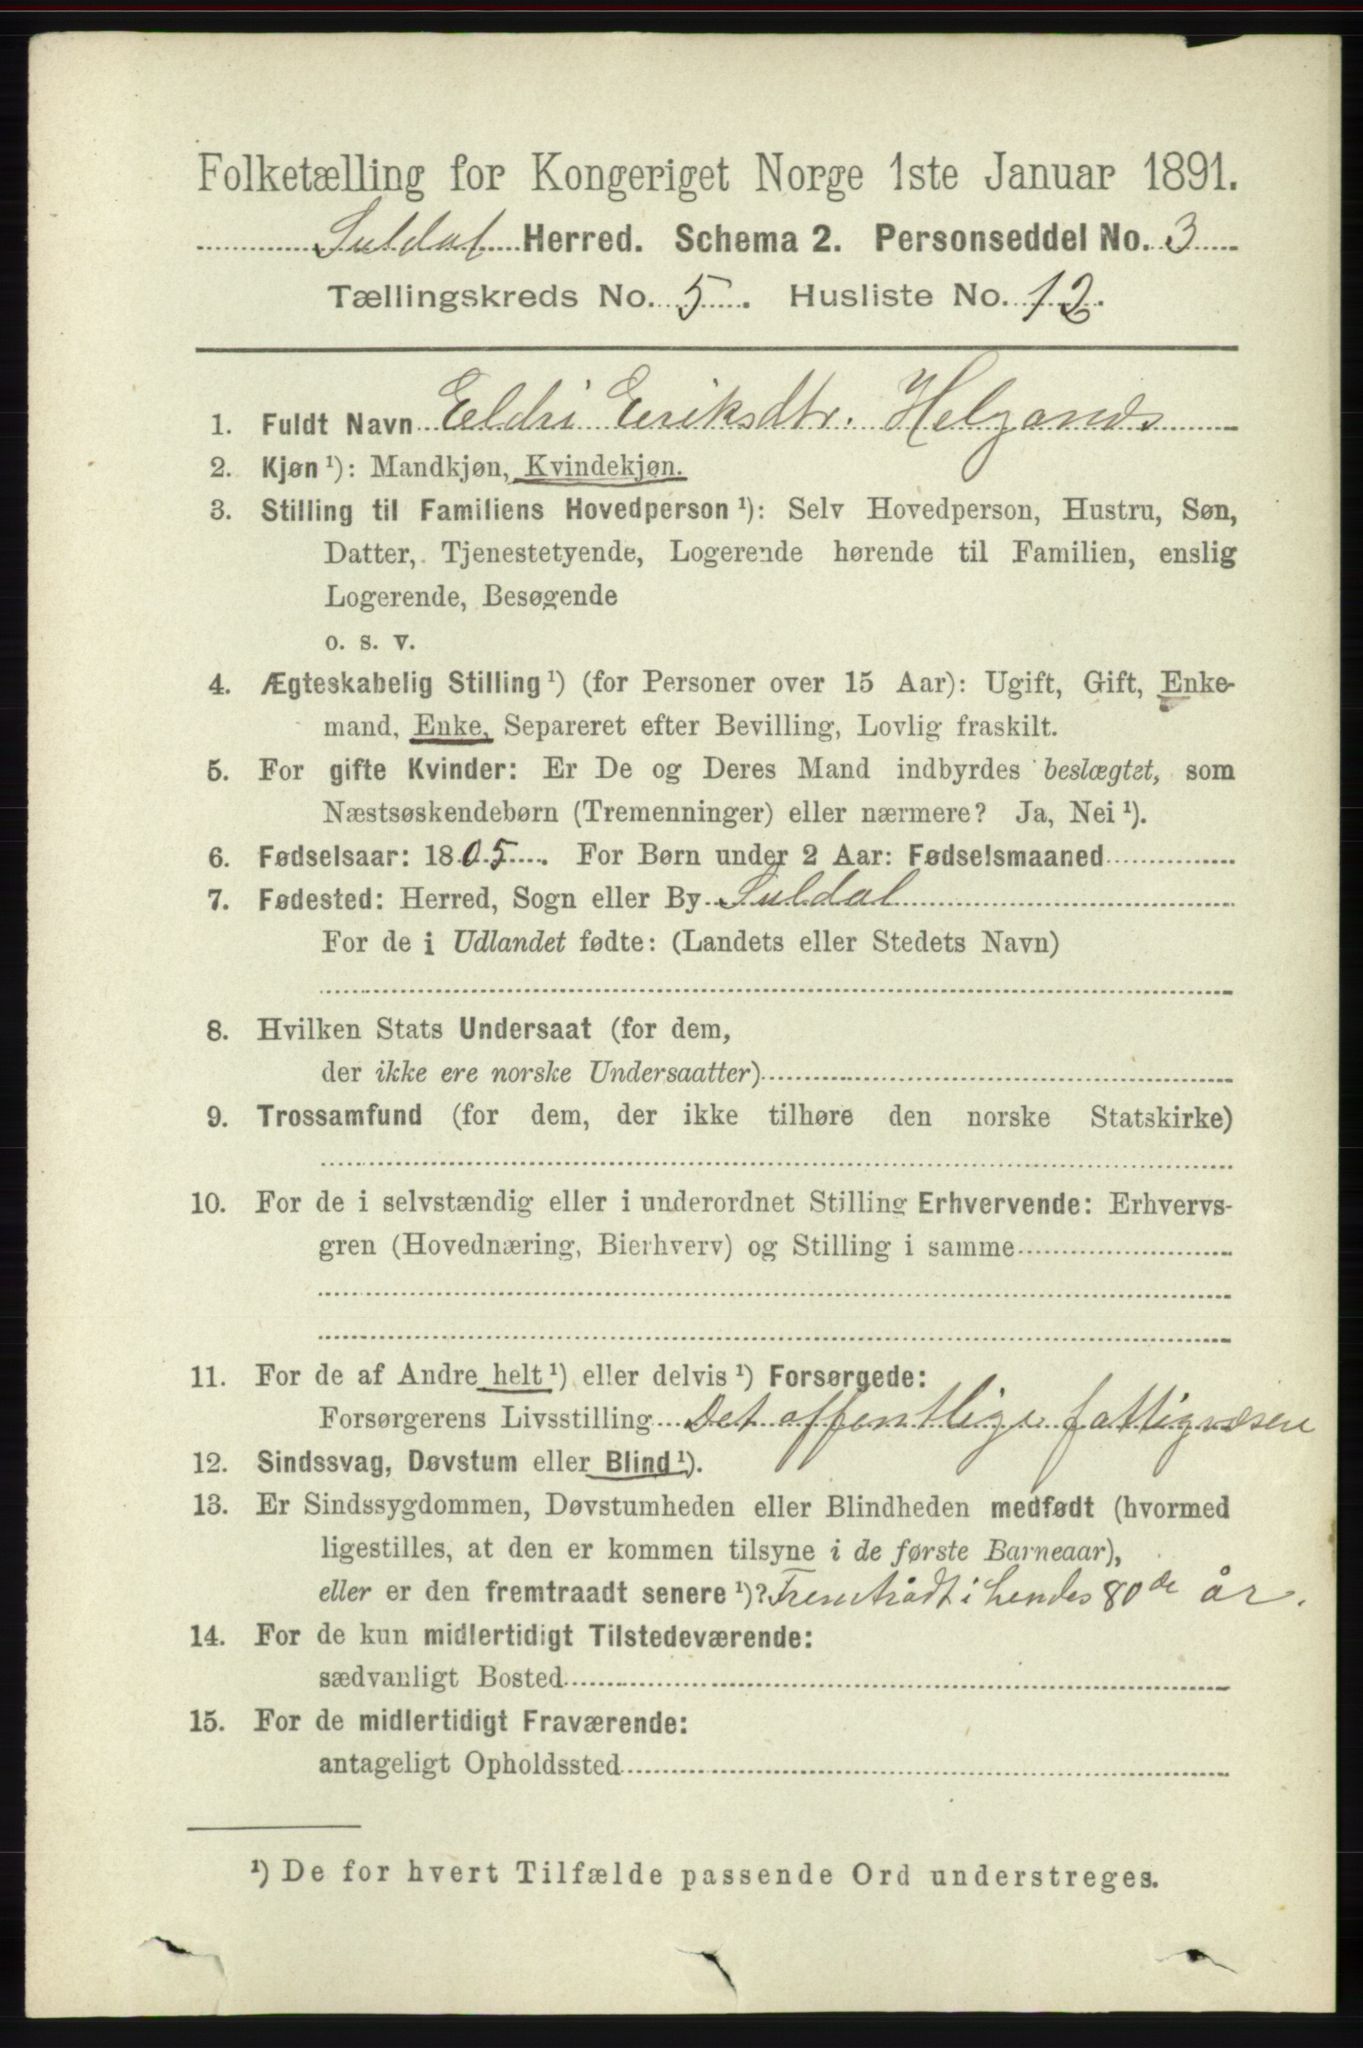 Folketælling for Kongeriget Norge 1ste Januar 1891.
Suldal Herred. Schema 2. Personseddel No. 3
Tællingskreds No. 5. Husliste No. 12.
1. Fuldt Navn Eldri Eriksdtr. Helgands
2. Kjøn ¹): Mandkjøn, Kvindekjøn.
3. Stilling til Familiens Hovedperson ¹): Selv Hovedperson, Hustru, Søn,
Datter, Tjenestetyende, Logerende hørende til Familien, enslig
Logerende, Besøgende
o. s. v.
4. Ægteskabelig Stilling ¹) (for Personer over 15 Aar): Ugift, Gift, Enke-
mand, Enke, Separeret efter Bevilling, Lovlig fraskilt.
5. For gifte Kvinder: Er De og Deres Mand indbyrdes beslægtet, som
Næstsøskendebørn (Tremenninger) eller nærmere? Ja, Nei ¹).
6. Fødselsaar: 1805. For Børn under 2 Aar: Fødselsmaaned
7. Fødested: Herred, Sogn eller By Suldal
For de i Udlandet fødte: (Landets eller Stedets Navn)
8. Hvilken Stats Undersaat (for dem,
der ikke ere norske Undersaatter)
9. Trossamfund (for dem, der ikke tilhøre den norske Statskirke)
10. For de i selvstændig eller i underordnet Stilling Erhvervende: Erhvervs-
gren (Hovednæring, Bierhverv) og Stilling i samme
11. For de af Andre helt ¹) eller delvis ¹) Forsørgede:
Forsørgerens Livsstilling Det offentlige fattigvæsen
12. Sindssvag, Døvstum eller Blind ¹).
13. Er Sindssygdommen, Døvstumheden eller Blindheden medfødt (hvormed
ligestilles, at den er kommen tilsyne i de første Barneaar),
eller er den fremtraadt senere ¹)? Fremtrådt i hendes 80de år.
14. For de kun midlertidigt Tilstedeværende:
sædvanligt Bosted
15. For de midlertidigt Fraværende:
antageligt Opholdssted
¹) De for hvert Tilfælde passende Ord understreges.